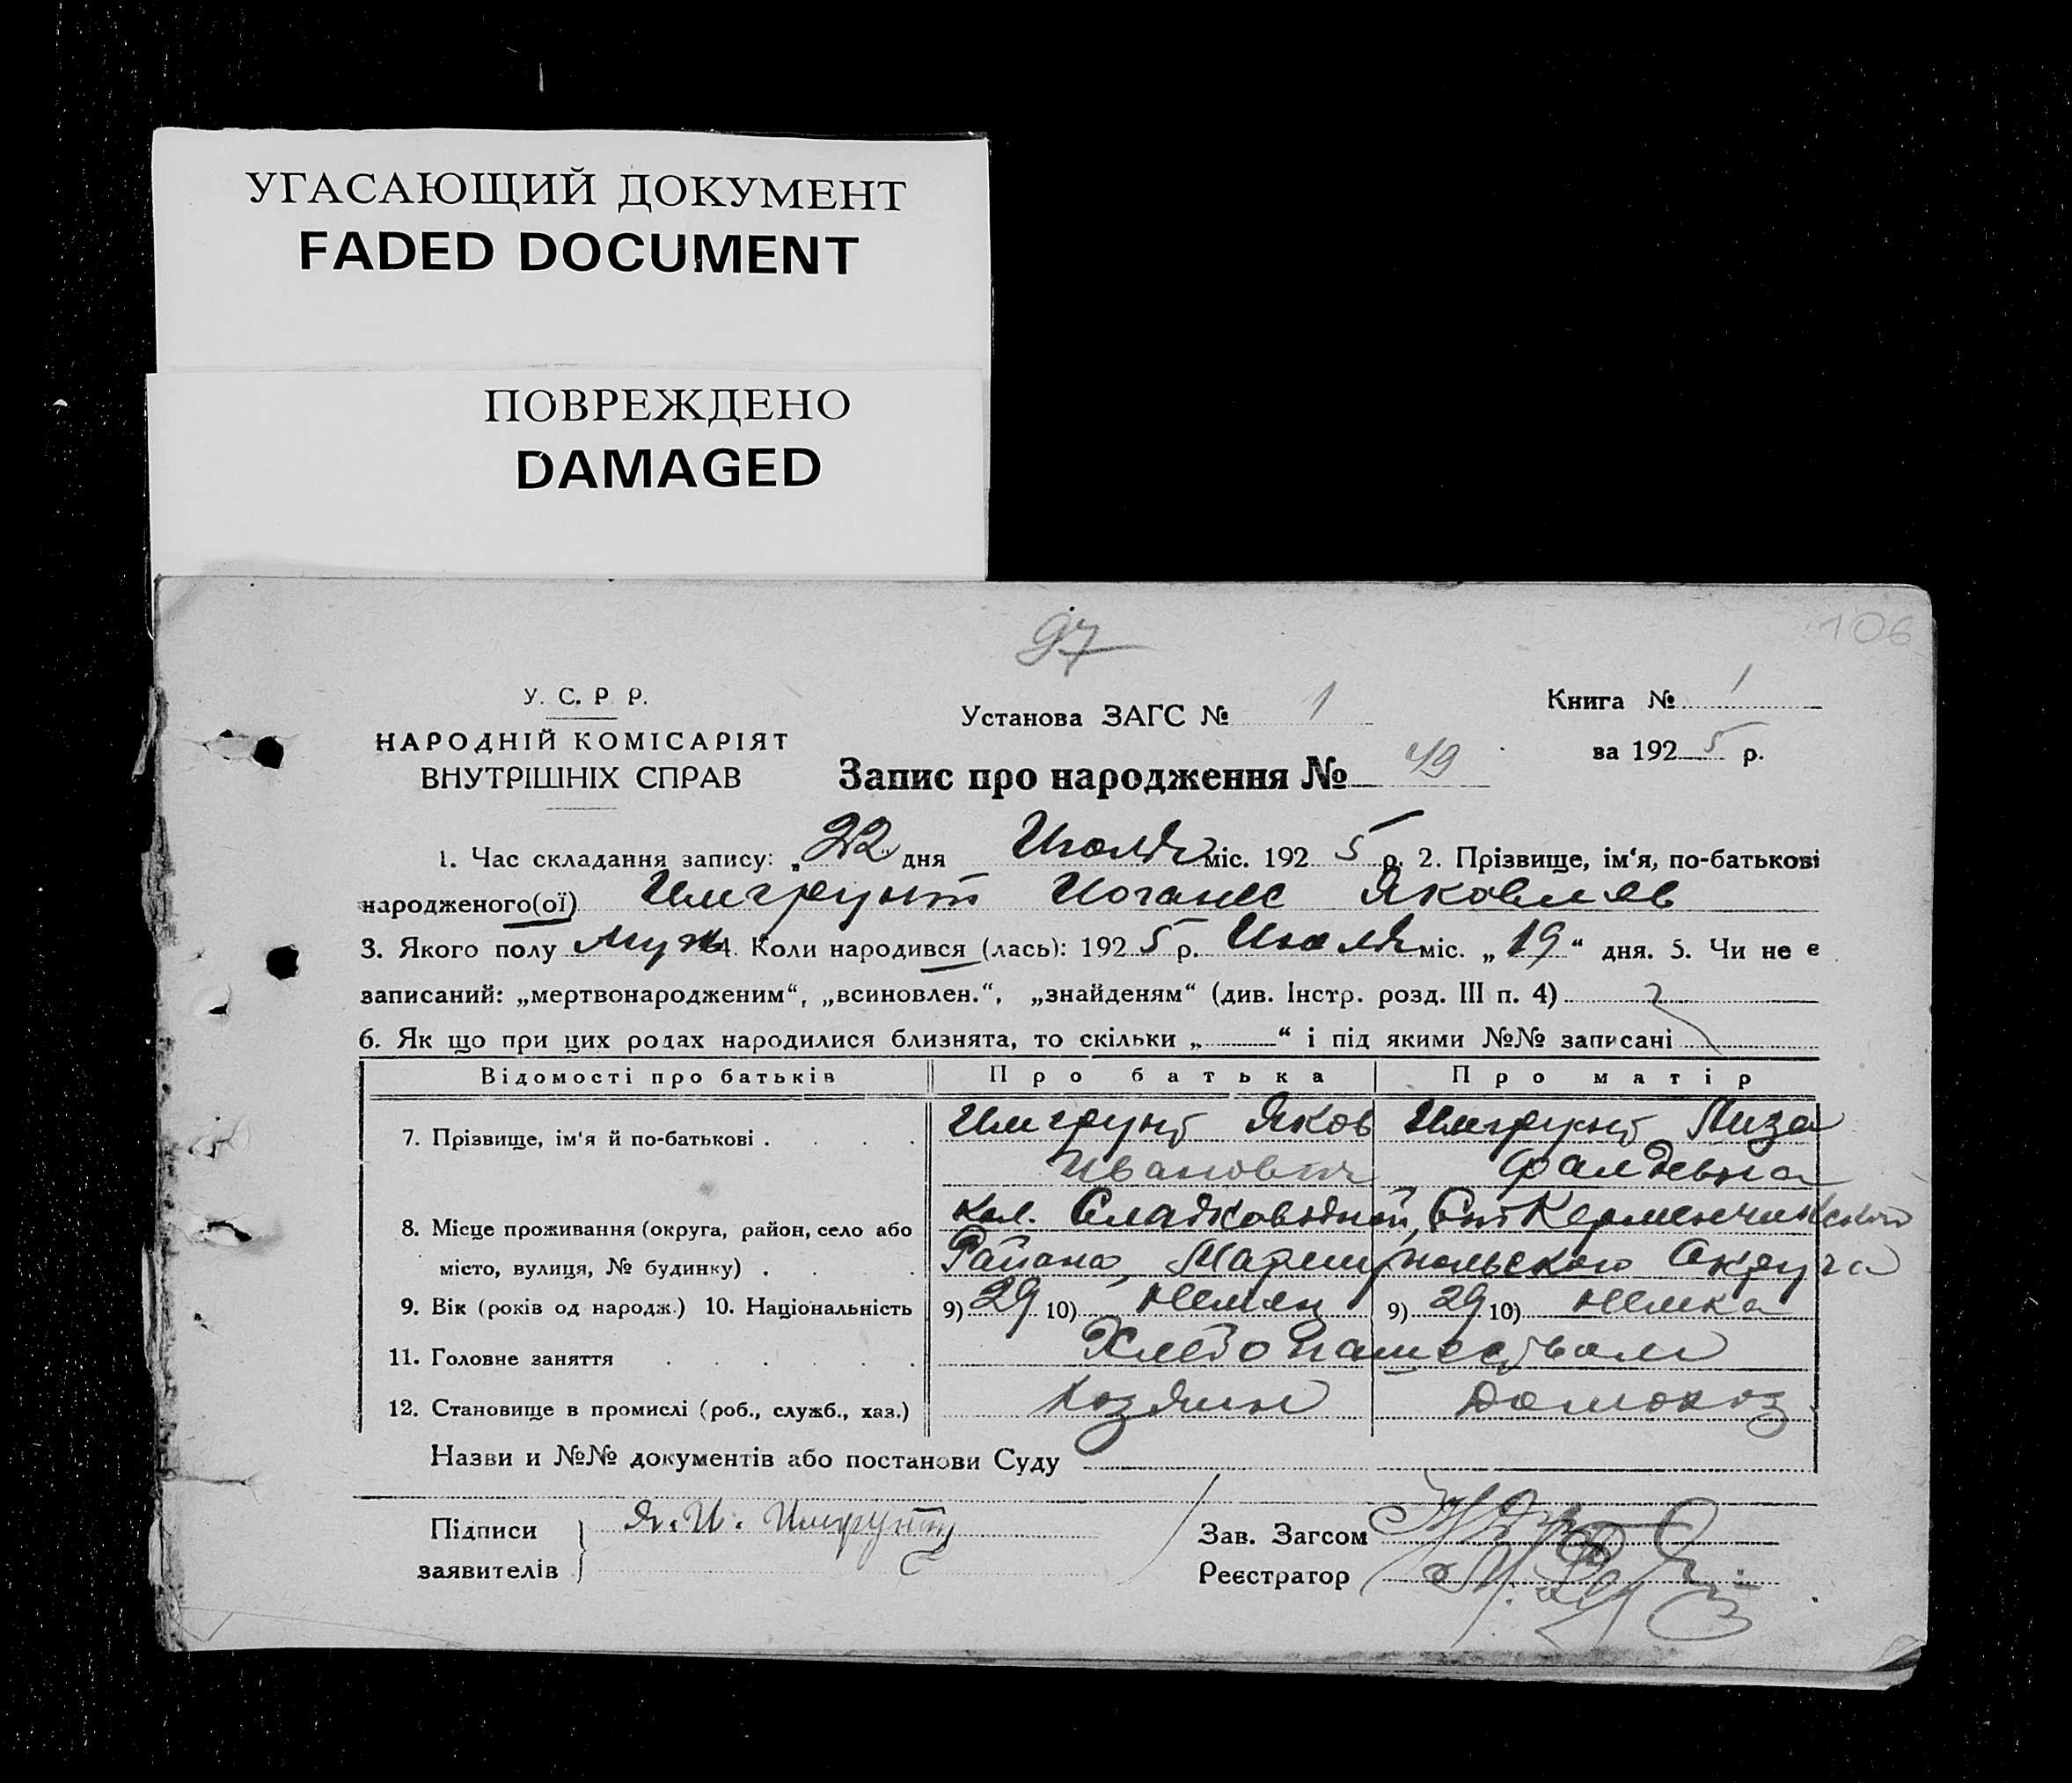 УГАСАЮЩИЙ ДОКУМЕНТ
FADED DOCUMENT
ПОВРЕЖДЕНО
DAMAGED
97
106
У. С. Р. Р.
НАРОДНІЙ КОМІСАРІЯТ
ВНУТРІШНІХ СПРАВ
Установа ЗАГС № 1
Книга № 1
за 1925 р.
Запис про народження № 49
1. Час складання запису: „22 дня Июля міс. 1925 р. 2. Прізвище, ім'я, по-батькові
народженого(ої) Имгрунт Иоганес Яковлев
3. Якого полу Муж 4. Коли народився (лась): 1925 р. Июля міс. „19“ дня. 5. Чи не є
записаний: „мертвонародженим“, „всиновлен.“, „знайденям“ (див. Інстр. розд. III п. 4)
6. Як що при цих родах народилися близнята, то скільки „ “ і під якими №№ записані
Відомості про батьків Про батька Про матір
7. Прізвище, ім'я й по-батькові . . . . Имгрунт Яков Имгрунт Лиза
Иванович
8. Місце проживання (округа, район, село або кол. Сладководной, Керменчикского
місто, вулиця, № будинку) . . Района, Мариупольского Округа
9. Вік (років од народж.) 10. Національність 9) 29 10) Немец 9) 29 10) Немка
11. Головне заняття . . . . . Хлебопашеством
12. Становище в промислі (роб., служб., хаз.) Хозяин Домохоз
Назви и №№ документів або постанови Суду
Підписи Я. И. Имгрунт Зав. Загсом
заявителів Реєстратор